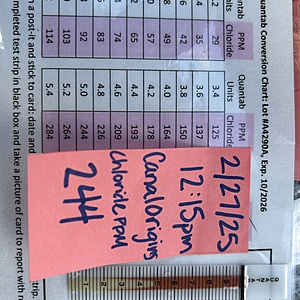 Quantab Conversion Chart: Lot #A4290A, Exp. 10/2026
PPM
Chloride
29
35
42
49
57
65
74
83
92
103
114
Quantab PPM
Units Chloride
3.4 125
3.6 137
3.8 150
4.0 164
4.2 178
4.4 193
4.6 209
4.8 226
5.0 244
5.2 264
5.4 284
a post-it and stick to card: date and
test strip in black box and take a picture of card to report with
2/27/25
12:15pm
Canal Origins
Chloride PPM
244